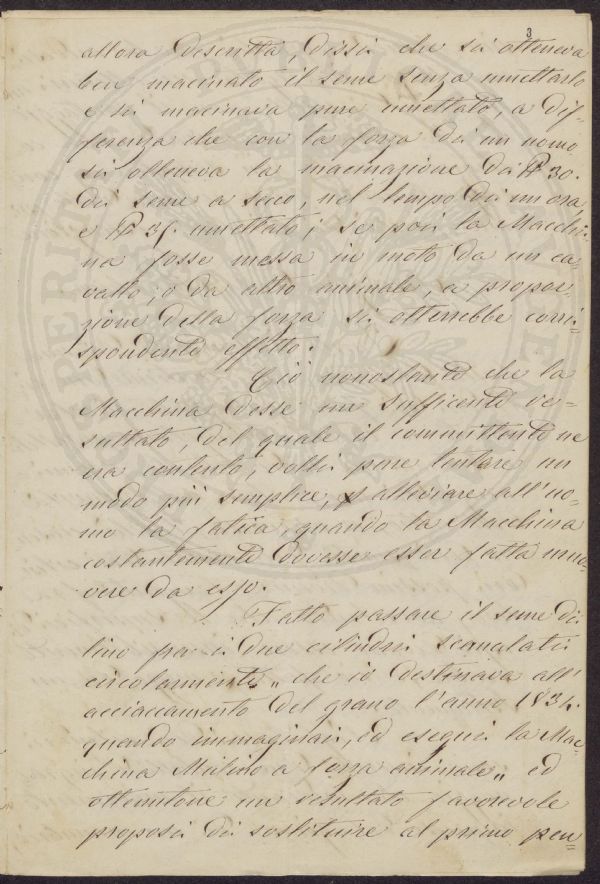 3
allora descritta, dissi che si otteneva
ben macinato il seme senza umettarlo
e si macinava pure umettato, a dif=
ferenza che con la forza di un uomo
si otteneva la macinazione di 30.
di seme a secco, nel tempo di un ora,
e 35. umettato; se poi la Macchi=
na fosse messa in moto da un ca=
vallo, o da altro animale, a propor=
zione della forza si otterrebbe corri=
spondente effetto.
Ciò nonostante che la
Macchina desse un sufficente re=
sultato, del quale il committente ne
era contento, volli pure tentare un
modo più semplice, alleviare all'uo=
mo la fatica, quando la Macchina
costantemente dovesse esser fatta muo=
vere da esso.
Fatto passare il seme di
lino fra i due cilindri scanalati
circolarmente „ che io destinava all'
acciaccamento del grano l'anno 1834.
quando immaginai, ed eseguii la Mac=
china Mulino a forza animale „ ed
ottenutone un resultato favorevole
proposi di sostituire al primo pen=